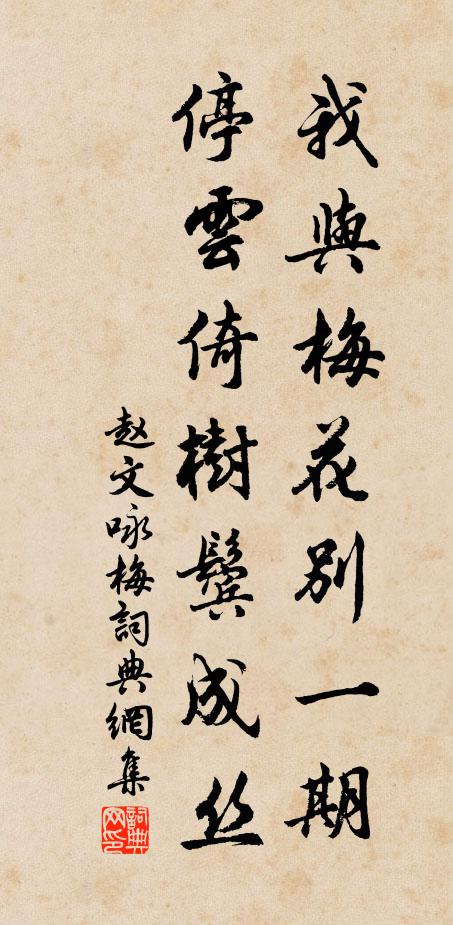 我與梅花別一期
停雲倚樹鬢成丝
赵文咏梅詞典網集
詞典网印